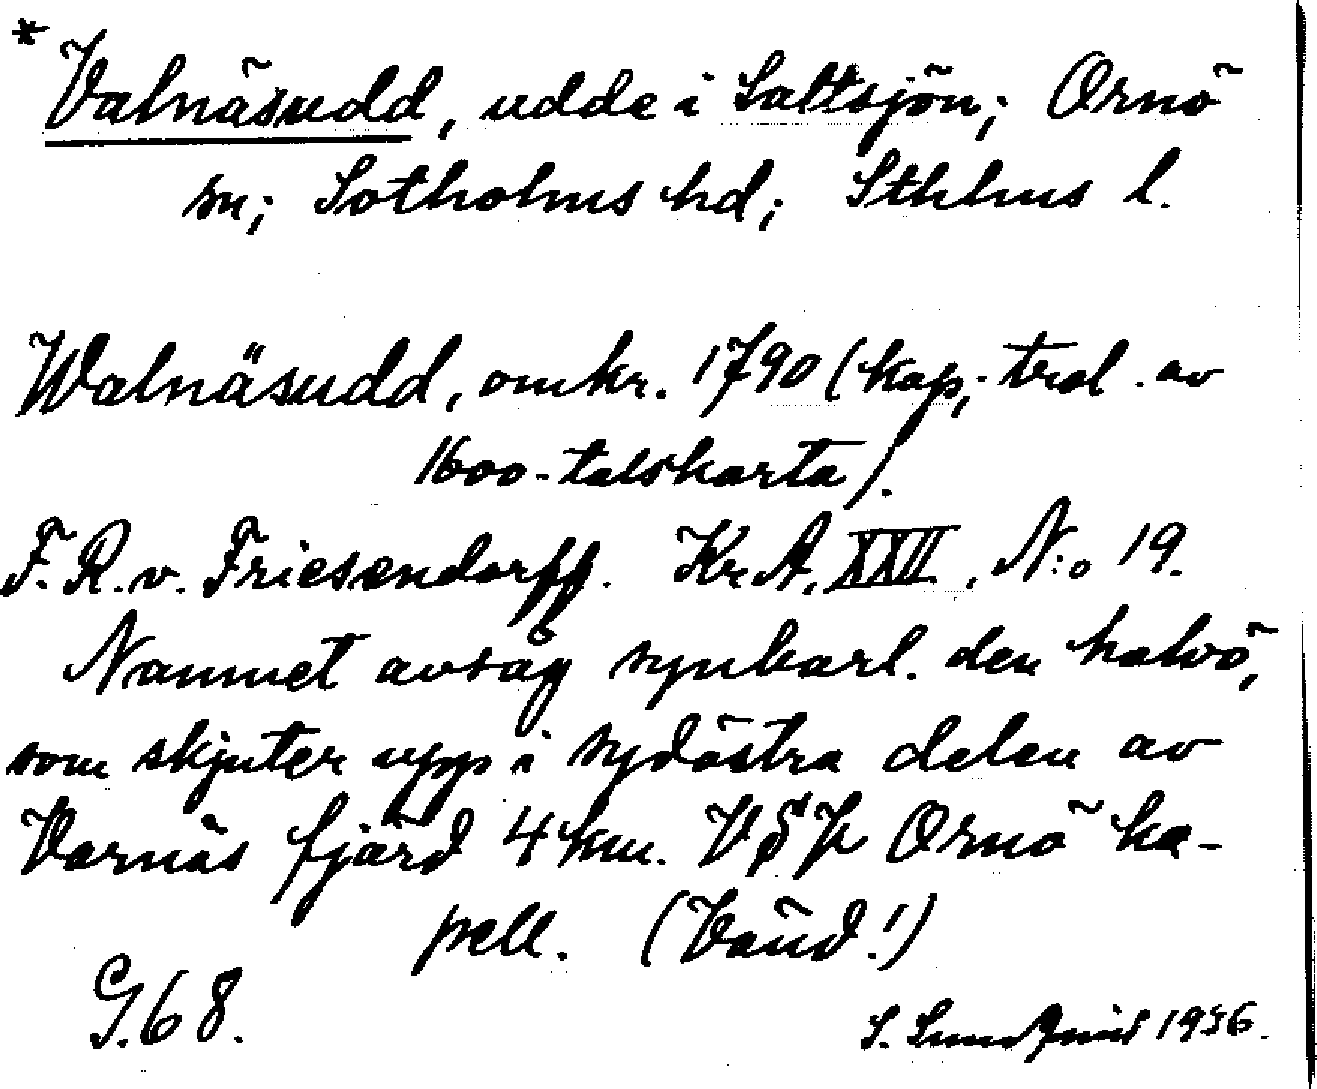 * Valnäsudd, udde i Saltsjön; Ornö
sn; Sotholms hd; Sthlms l.
Walnäsudd, omkr. 1790 (kap; trol. av
1600-talskarta).
F. R. v. Friesendorff. Kr. A. XXII. N:o 19.
Namnet avsåg synbarl. den halvö,
som skjuter upp i sydöstra delen av
Varnäs fjärd 4 km. VSV Ornö ka-
pell. (Vänd!)
G. 68.
S. Sundqvist 1936.